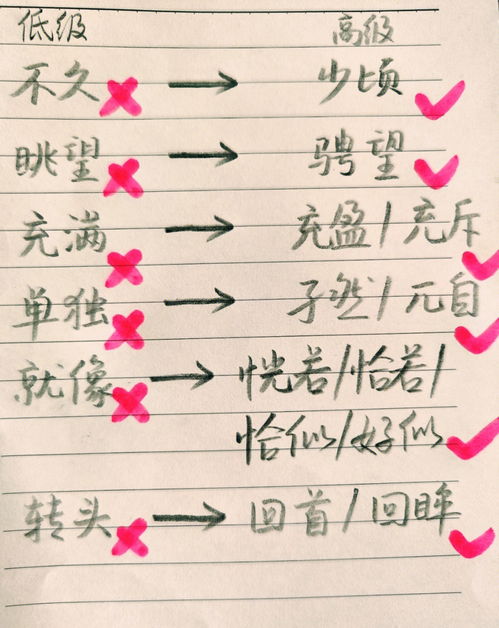 低级 高级
不久 → 少顷
眺望 → 骋望
充满 → 充盈/充斥
单独 → 孑然/兀自
就像 → 恍若/恰若/
恰似/好似
转头 → 回首/回眸